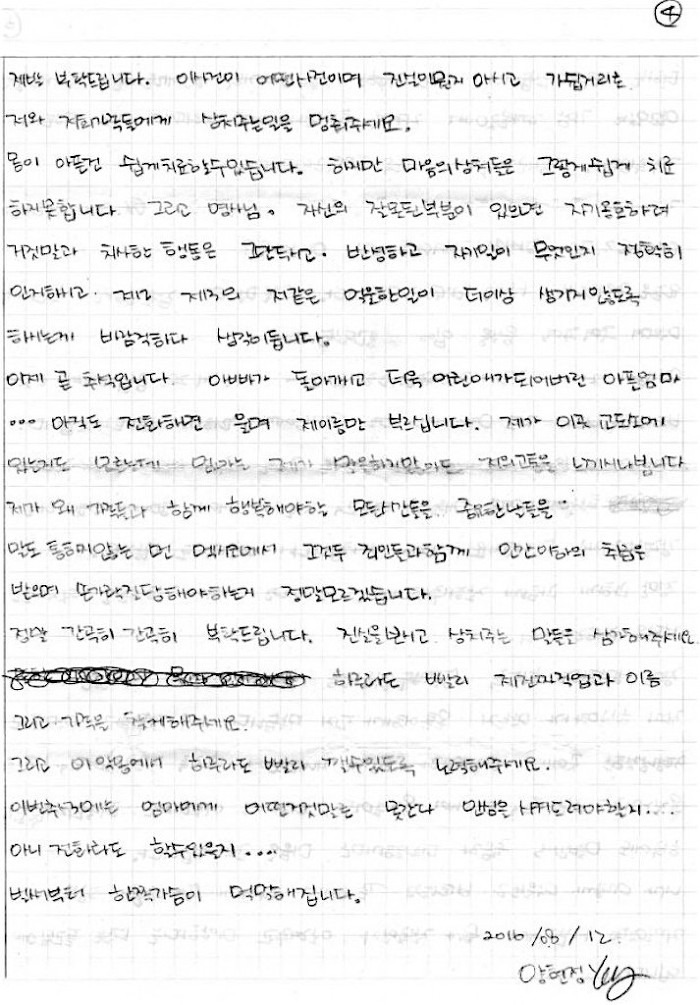 ④
제발 부탁드립니다. 이사건이 어떤사건이며 진실이뭔지 아시고 가쉽거리로
저와 저희가족들에게 상처주는일을 멈춰주세요.
몸이 아픈건 쉽게치료할수있습니다. 하지만 마음의상처들은 그렇게쉽게 치료
하지못합니다 그리고 영사님. 자신의 잘못된부분이 있으면 자기옹호하려
거짓말과 치사한 행동은 그만두시고. 반성하고 자기일이 무엇인지 정확히
인지하시고. 제2 제3의 저같은 억울한일이 더이상 생기지않도록
하시는게 바람직하다 생각이듭니다.
이제 곧 추석입니다. 아빠가 돌아가시고 더욱 어린애가되어버린 아픈엄마
... 아직도 전화하면 울며 제이름만 부르십니다. 제가 이곳 교도소에
있는지도 모르는데 엄마는 제가 말은하지말아도 저의고통을 느끼시나봅니다
제가 왜 가족들과 함께 행복해야하는 모든시간들을. 금같은날들을
말도 통하지않는 먼 멕시코에서 그것두 죄인들과함께 인간이하의 취급을
받으며 손가락질당해야하는지 정말모르겠습니다.
정말 간곡히 간곡히 부탁드립니다. 진실을보시고 상처주는 말들을 삼가해주세요
하루라도 빨리 제건저직업과 이름
그리고 가족을 찾게해주세요.
그리고 이악몽에서 하루라도 빨리 깰수있도록 노력해주세요.
이번추석에는 엄마에게 어떤거짓말로 못간다 안심을 시켜드려야할지...
아니 전화라도 할수있을지....
벌써부터 한쪽가슴이 먹먹해집니다.
2016 /08 / 12.
양현정